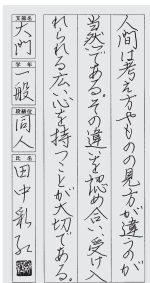 人間は考え方やものの見方が違うのが
当然である。その違いを認め合い、受け入
れられる広い心を持つことが大切である。
支部名
大門
学年
一般
段級位
同人
氏名
田中彩